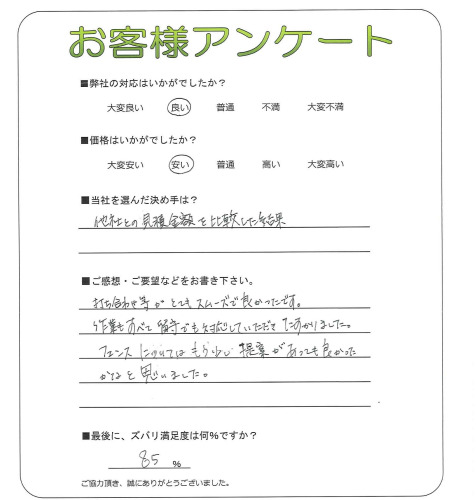 お客様アンケート
■弊社の対応はいかがでしたか？
大変良い 良い 普通 不満 大変不満
■価格はいかがでしたか？
大変安い 安い 普通 高い 大変高い
■当社を選んだ決め手は？
他社との見積金額を比較した結果
■ご感想・ご要望などをお書き下さい。
打ち合わせ等がとてもスムーズで良かったです。
作業もすべて留守でも対応していただきてたすかりました。
フェンスについてはもう少し提案があっても良かった
かなと思いました。
■最後に、ズバリ満足度は何%ですか？
85 %
ご協力頂き、誠にありがとうございました。